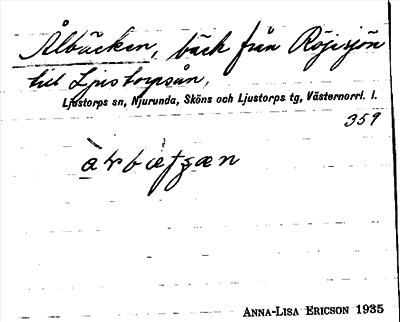 Ålbäcken, bäck från Röjesjön
till Ljustorpsån.
Ljustorps sn, Njurunda, Sköns och Ljustorps tg, Västernorrl. l.
359
ANNA-LISA ERICSON 1935